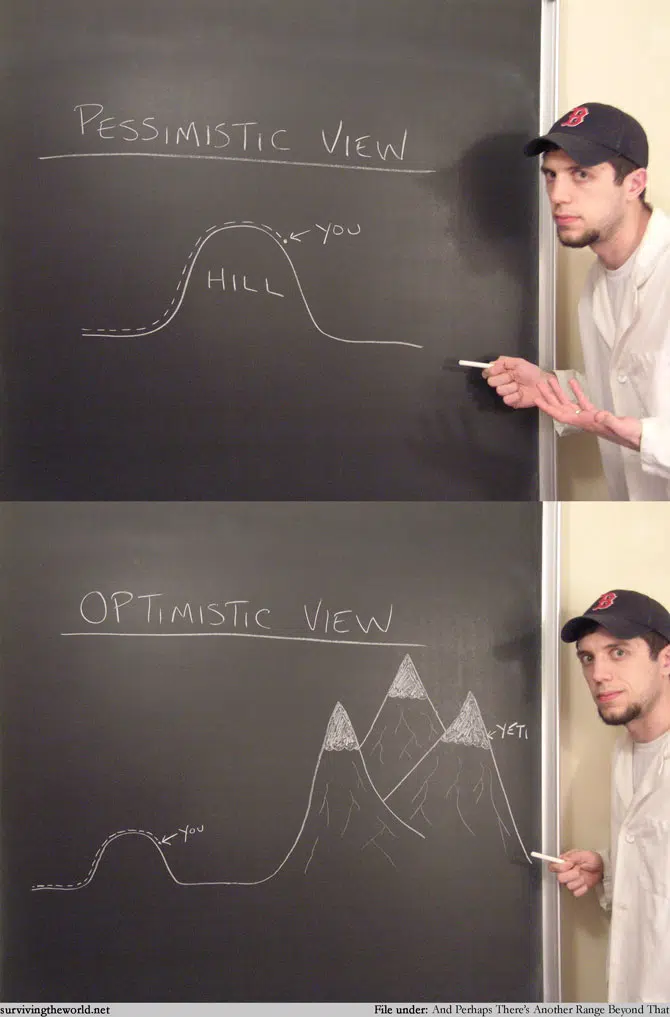 PESSIMISTIC VIEW
YOU
HILL
B
OPTIMISTIC VIEW
YETI
YOU
B
survivingtheworld.net
File under: And Perhaps There's Another Range Beyond That